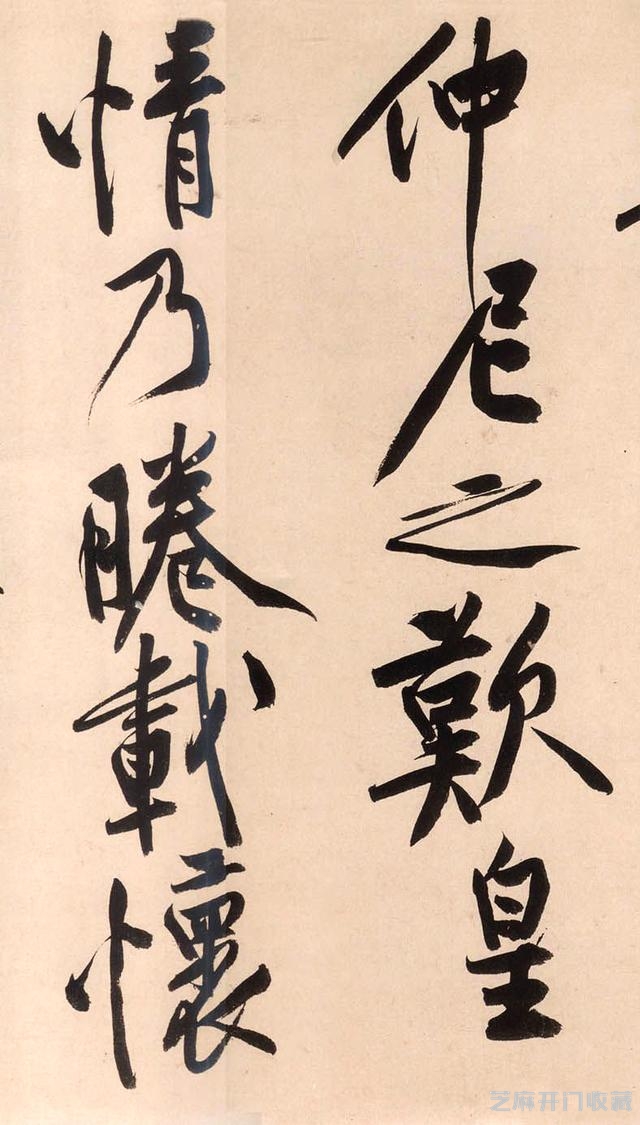 仲尼之歎皇
情乃睠載懷
芝麻开门收藏